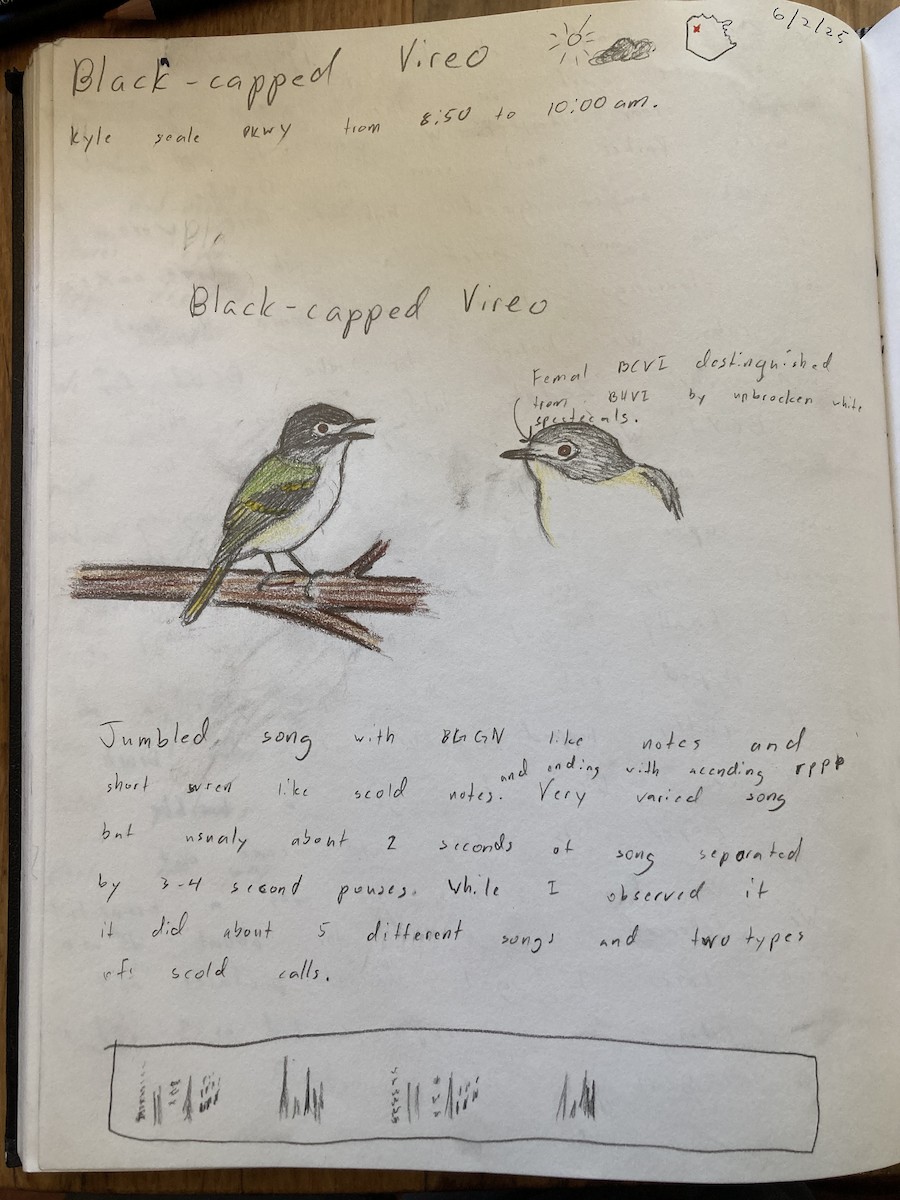 6/2/25
Black-capped Vireo
Kyle seale PKWY from 8:50 to 10:00 am.
Black-capped Vireo
Femal BCVI destinguished
from BHVI by unbrocken white
spectecals.
Jumbled song with BGGN like notes and
and ending with accending rppp
short wren like scold notes. Very varied song
but usualy about 2 seconds of song seperated
by 3-4 second pouses. While I observed it
it did about 5 different songs and two types
scold calls.